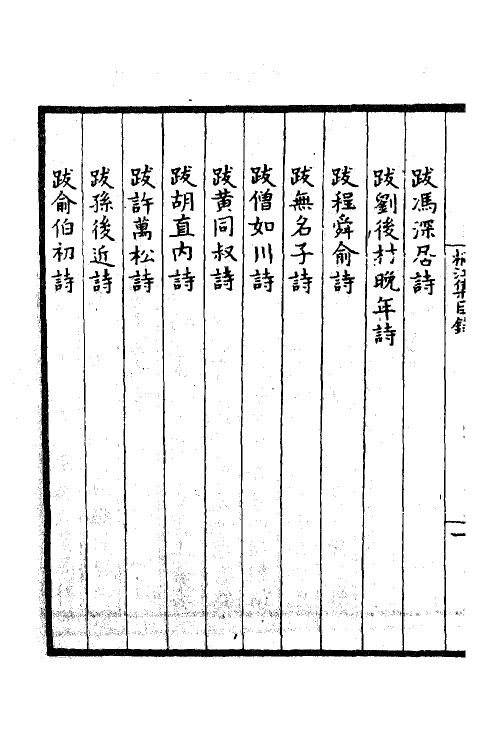 桐江集目錄
一
跋馮深居詩
跋劉後村晚年詩
跋程舜俞詩
跋無名子詩
跋僧如川詩
跋黄同叔詩
跋胡直内詩
跋許萬松詩
跋孫後近詩
跋俞伯初詩